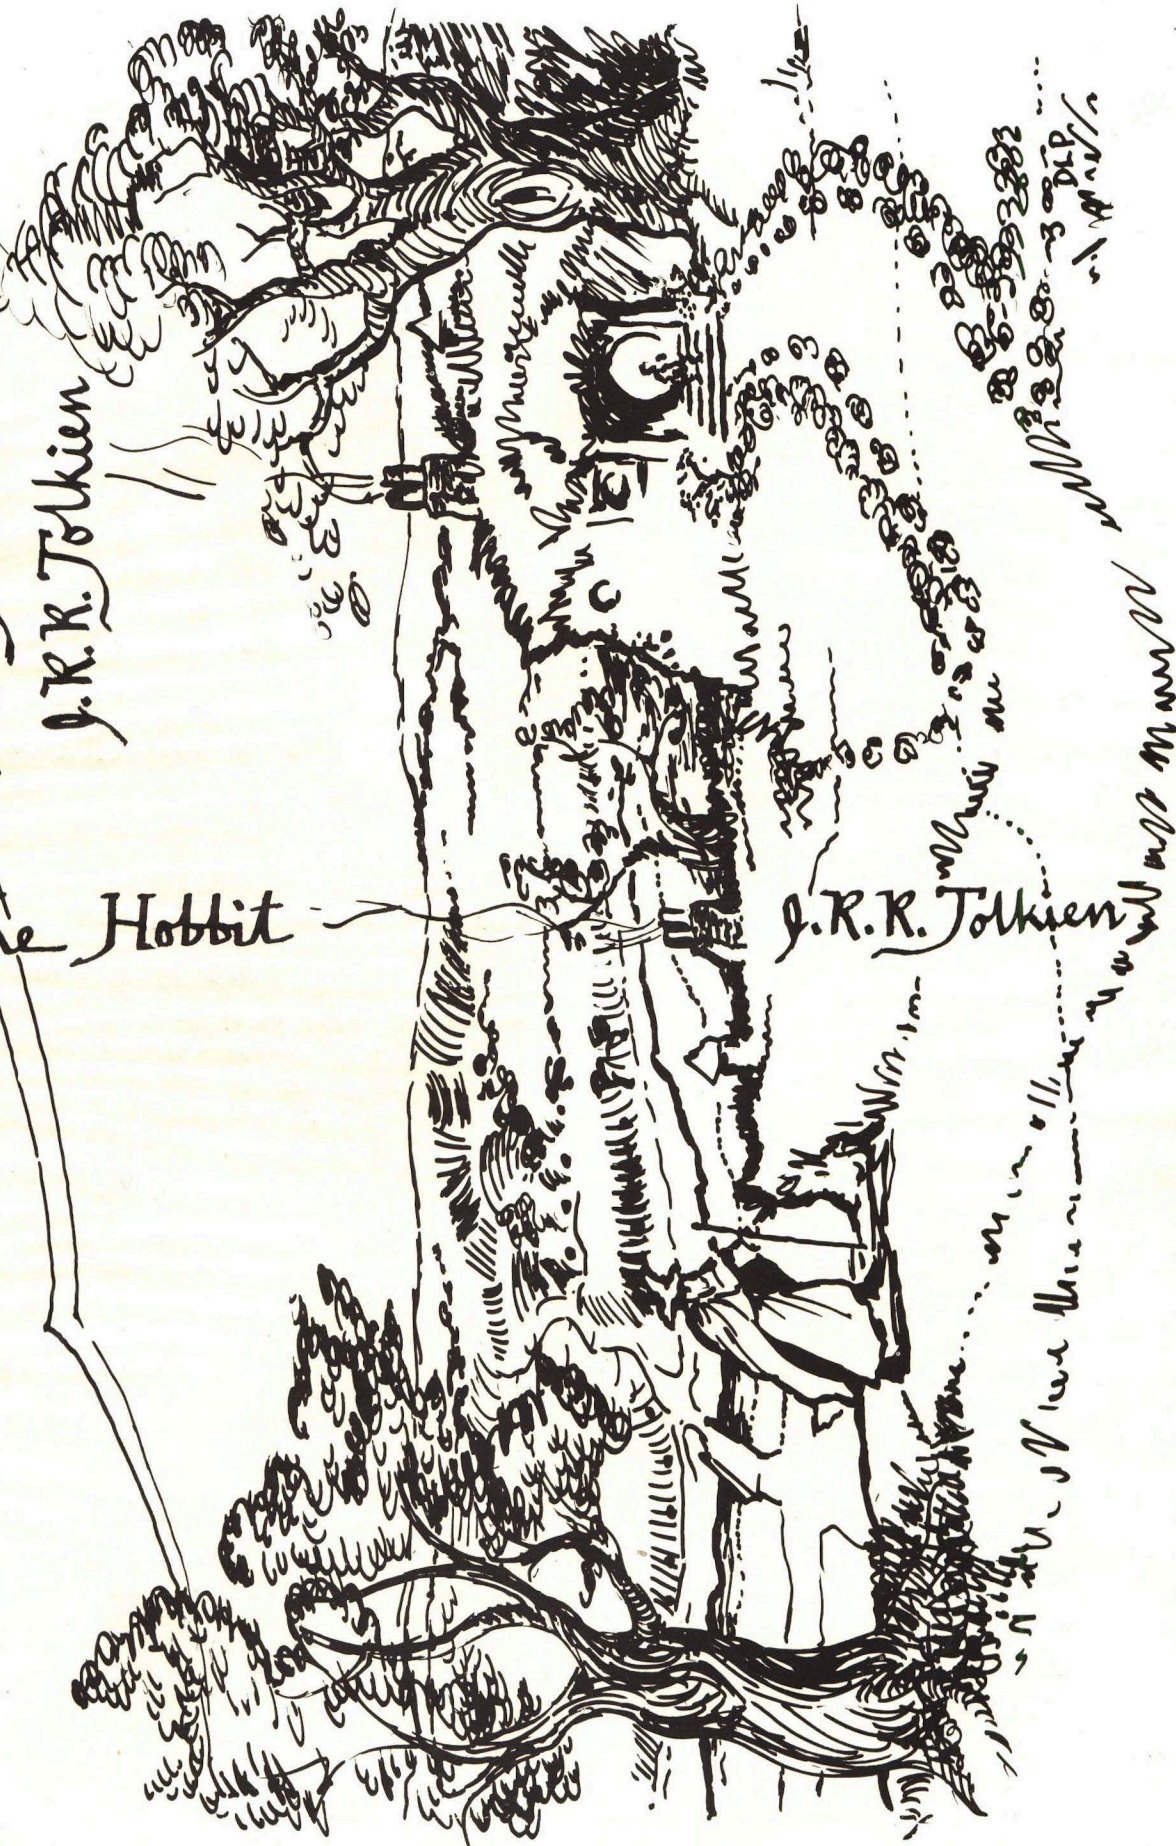 J.R.R. Tolkien
e Hobbit
J.R.R. Tolkien
DLP